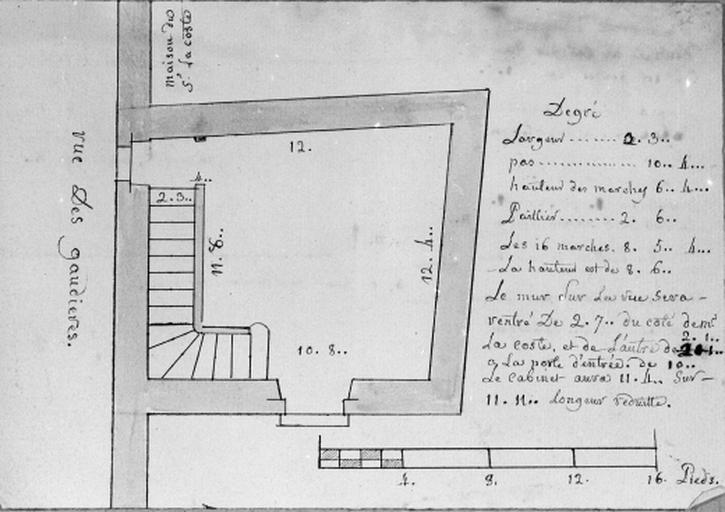 maison du
Sr. La coste
rue des gaudieres.
12.
4..
2. 3..
11. 8..
12. 4..
10. 8..
Degré
Largeur ........ 2. 3..
pas .............. 10.. 4...
hauteur des marches 6.. 4...
Paillier ........ 2. 6..
Les 16 marches. 8. 5.. 4...
La hauteur est de 8. 6..
Le mur sur La rue sera
rentré De 2. 7.. du coté de mr.
La coste, et de L'autre de 2. 1..
La porte d'entrée. de 10..
Le Cabinet aura 11. 4.. Sur
11. 11.. Longeur reduitte.
4. 8. 12. 16. Pieds.